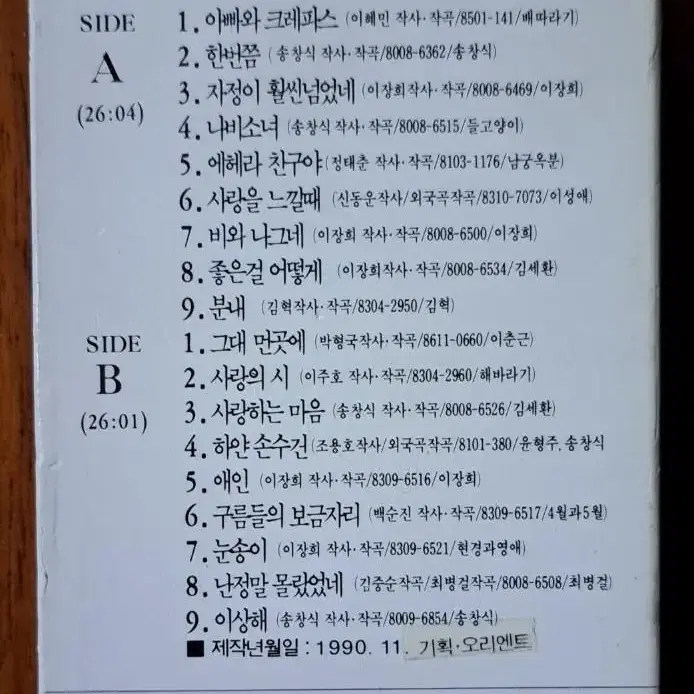 SIDE
A
(26:04)
1. 아빠와 크레파스 (이혜민 작사·작곡/8501-141/배따라기)
2. 한번쯤 (송창식 작사·작곡/8008-6362/송창식)
3. 자정이 훨씬넘었네 (이장희작사·작곡/8008-6469/이장희)
4. 나비소녀 (송창식 작사·작곡/8008-6515/들고양이)
5. 에헤라 친구야 (정태춘 작사·작곡/8103-1176/남궁옥분)
6. 사랑을 느낄때 (신동운작사/외국곡작곡/8310-7073/이성애)
7. 비와 나그네 (이장희 작사·작곡/8008-6500/이장희)
8. 좋은걸 어떻게 (이장희작사·작곡/8008-6534/김세환)
9. 분내 (김혁작사·작곡/8304-2950/김혁)
SIDE
B
(26:01)
1. 그대 먼곳에 (박형국작사·작곡/8611-0660/이춘근)
2. 사랑의 시 (이주호 작사·작곡/8304-2960/해바라기)
3. 사랑하는 마음 (송창식 작사·작곡/8008-6526/김세환)
4. 하얀 손수건 (조용호작사/외국곡작곡/8101-380/윤형주, 송창식
5. 애인 (이장희 작사·작곡/8309-6516/이장희)
6. 구름들의 보금자리 (백순진 작사·작곡/8309-6517/4월과5월)
7. 눈송이 (이장희 작사·작곡/8309-6521/현경과영애)
8. 난정말 몰랐었네 (김중순작곡/최병걸작곡/8008-6508/최병걸)
9. 이상해 (송창식 작사·작곡/8009-6854/송창식)
■ 제작년월일 : 1990. 11. 기획·오리엔트